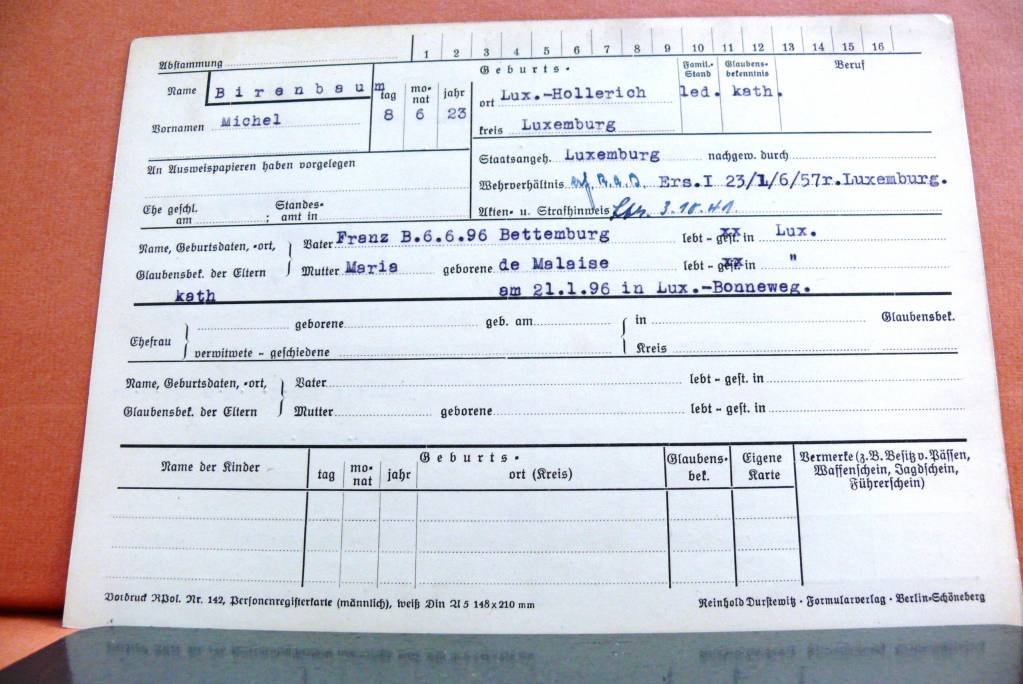 1 2 3 4 5 6 7 8 9 10 11 12 13 14 15 16
Abstammung
Geburts- Famil.- Stand Glaubens- bekenntnis Beruf
Name Birenbaum tag mo- nat jahr ort Lux.-Hollerich led. kath.
Vornamen Michel 8 6 23 kreis Luxemburg
An Ausweispapieren haben vorgelegen Staatsangeh. Luxemburg nachgew. durch
Wehrverhältnis R.A.D. Ers.I 23/1/6/57r.Luxemburg.
Ehe geschl. am ; Standes- amt in Akten- u. Strafhinweis 3.10.41.
Name, Geburtsdaten, -ort, Vater Franz B.6.6.96 Bettemburg lebt - gest. in Lux.
Glaubensbek. der Eltern Mutter Maria geborene de Malaise lebt - gest. in "
kath am 21.1.96 in Lux.-Bonneweg.
Ehefrau geborene geb. am in Glaubensbek.
verwitwete - geschiedene Kreis
Name, Geburtsdaten, -ort, Vater lebt - gest. in
Glaubensbek. der Eltern Mutter geborene lebt - gest. in
Name der Kinder Geburts- Glaubens- bek. Eigene Karte Vermerke (z.B. Besitz v. Pässen,
tag mo- nat jahr ort (Kreis) Waffenschein, Jagdschein,
Führerschein)
Vordruck RPol. Nr. 142, Personenregisterkarte (männlich), weiß Din A 5 148x210 mm Reinhold Durstewitz · Formularverlag · Berlin-Schöneberg